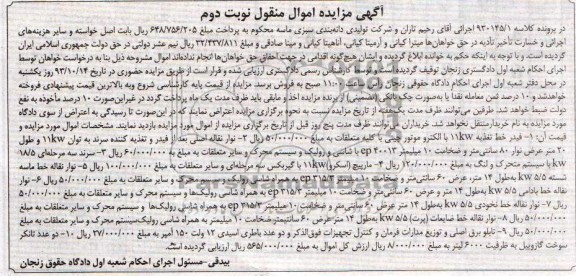 آگهی مزایده اموال منقول نوبت دوم
در پرونده کلاسه ۹۳۰۱۴۵/۱ اجرائی آقای رحیم تاران و شرکت تولیدی دانه‌بندی سبزی ماسه محکوم به پرداخت مبلغ ۶۴۸/۷۵۶/۲۰۵ ریال بابت اصل خواسته و سایر هزینه‌های
اجرائی و خسارت تأخیر تأدیه در حق خواهان‌ها میترا کیانی و آرمینا کیانی، آناهیتا کیانی و مینا صادقی و مبلغ ۳۲/۴۳۷/۸۱۱ ریال نیم عشر دولتی در حق دولت جمهوری اسلامی ایران
گردیده است. و با توجه به اینکه حکم به خوانده ابلاغ گردیده و ایشان هیچ‌گونه اقدامی در جهت احقاق حق خواهان‌ها انجام نداده‌اند اموال مشروحه ذیل بنا به درخواست خواهان توسط
اجرای احکام شعبه اول دادگستری زنجان توقیف گردیده کارشناس رسمی دادگستری ارزیابی شده و قرار است از طریق مزایده حضوری در تاریخ ۹۳/۱۰/۱۴ روز یکشنبه
در محل دفتر شعبه اول اجرای احکام دادگاه حقوقی زنجان از ساعت ۱۱:۰۰ صبح به فروش برسد. مزایده از قیمت پایه کارشناسی شروع و به بالاترین قیمت پیشنهادی فروخته
خواهد شد و ۱۰ درصد ثمن معامله نقدا یا به‌صورت چک بانکی (تضمینی) از برنده مزایده اخذ و مابقی باید ظرف مدت یک ماه پرداخت گردد در غیراین‌صورت ۱۰ درصد مأخوذه به نفع
دولت ضبط خواهد شد. طرفین می‌توانند ظرف مدت یک هفته از تاریخ مزایده نسبت به نحوه برگزاری مزایده اعتراض نمایند که در این‌صورت تا رسیدگی به اعتراض از سوی دادگاه
مورد مزایده به نام خریدار منتقل نخواهد شد. خریداران می‌توانند ظرف مدت پنج روز قبل از تاریخ برگزاری مزایده از اموال مورد مزایده بازدید نمایند. مشخصات اموال مورد مزایده و
قیمت آن: ۱- فیدر خط تغذیه ۱۱kw با الکترو موتور چینی با کلیه متعلقات به مبلغ ۵۰/۰۰۰/۰۰۰ ریال ۲- نوار نقاله اصلی بعد از فیدر و تغذیه کننده سرند به توان ۱۱kw و طول
۲۰ متر عرض نوار ۸۰ سانتی‌متر و ضخامت ۱۰ میلیمتر ep ۴۰۰/۳ با شاسی و رولیک و سیستم محرک و سایر متعلقات به مبلغ ۶۰/۰۰۰/۰۰۰ ریال ۳- سرند سه مرحله‌ای ۱۸/۵
kw با سیستم متحرک و لنگ به مبلغ ۱۲۰/۰۰۰/۰۰۰ ریال ۴- مارپیچ (اسکرو) ۱۱kw با گیربکس سه مرحله‌ای و سایر متعلقات به مبلغ ریال ۵- نوار نقاله خط ماسه
شسته ۵/۵ kw به‌طول ۱۴ متر، عرض ۶۰ سانتی‌متر و ضخامت ۱۰ میلیمتر ep ۳۱۵/۳ به همراه شاسی رولیک و سیستم محرک و سایر متعلقات به مبلغ ۵۰/۰۰۰/۰۰۰ ریال ۶- نوار
نقاله خط بادامی ۵/۵ kw به‌طول ۱۴ متر و عرض ۶۰ سانتی‌متر و ضخامت ۱۰ میلیمتر ep ۳۱۵/۳ به همراه شاسی و رولیک‌ها و سیستم محرک و سایر متعلقات به مبلغ ۵۰/۰۰۰/۰۰۰
ریال ۷- نوار نقاله خط نخودی ۵/۵ kw به‌طول ۱۴ متر عرض ۶۰ سانتی‌متر و ضخامت ۱۰ میلیمتر ep ۳۱۵/۳ به همراه شاسی رولیک‌ها و سیستم محرک و سایر متعلقات به مبلغ
۵۰/۰۰۰/۰۰۰ ریال ۸- نوار نقاله خط ضایعات (پرت) ۵/۵ kw به‌طول ۱۴ متر عرض ۶۰ سانتیمتر ضخامت ۱۰ میلیمتر به همراه شاسی رولیک سیستم محرک و سایر متعلقات به مبلغ
۵۰/۰۰۰/۰۰۰ ریال ۹- تابلو برق اصلی و توزیع مدارات فرمان و کنترل تجهیزات فوق‌الذکر و دو عدد باطری اسیدی ۱۲ ولت ۱۵۰ آمپر به مبلغ ۲۷/۰۰۰/۰۰۰ ریال ۱۰- دو عدد تانکر
سوخت گازوییل به ظرفیت ۶۰۰۰ لیتر به مبلغ ۸/۰۰۰/۰۰۰ ریال و ارزش کل اموال به مبلغ ۵۶۵/۰۰۰/۰۰۰ ریال ارزیابی گردیده است.
بیدقی-مسئول اجرای احکام شعبه اول دادگاه حقوق زنجان